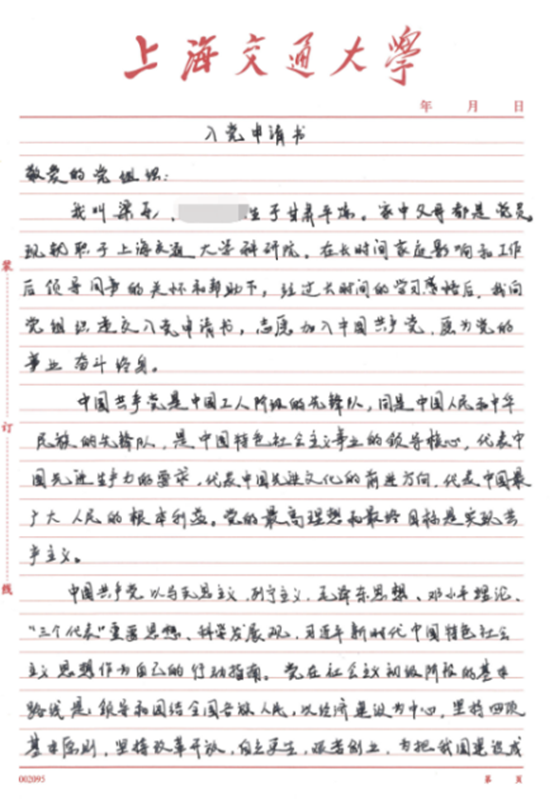 上海交通大學
年 月 日
入党申请书
敬爱的党组织：
我叫梁 ， 生于甘肃平凉。家中父母都是党员，
现就职于上海交通大学科研院。在长时间家庭影响和工作
后领导同事的关怀和帮助下，经过长时间的学习感悟后，我向
党组织递交入党申请书，志愿加入中国共产党，愿为党的
事业奋斗终身。
中国共产党是中国工人阶级的先锋队，同是中国人民和中华
民族的先锋队，是中国特色社会主义事业的领导核心，代表中
国先进生产力的要求，代表中国先进文化的前进方向，代表中国最
广大人民的根本利益。党的最高理想和最终目标是实现共
产主义。
中国共产党以马克思主义、列宁主义、毛泽东思想、邓小平理论、
“三个代表”重要思想、科学发展观、习近平新时代中国特色社会
主义思想作为自己的行动指南。党在社会主义初级阶段的基本
路线是领导和团结全国各族人民，以经济建设为中心，坚持四项
基本原则，坚持改革开放，自力更生，艰苦创业，为把我国建设成
装
订
线
002095
第 页